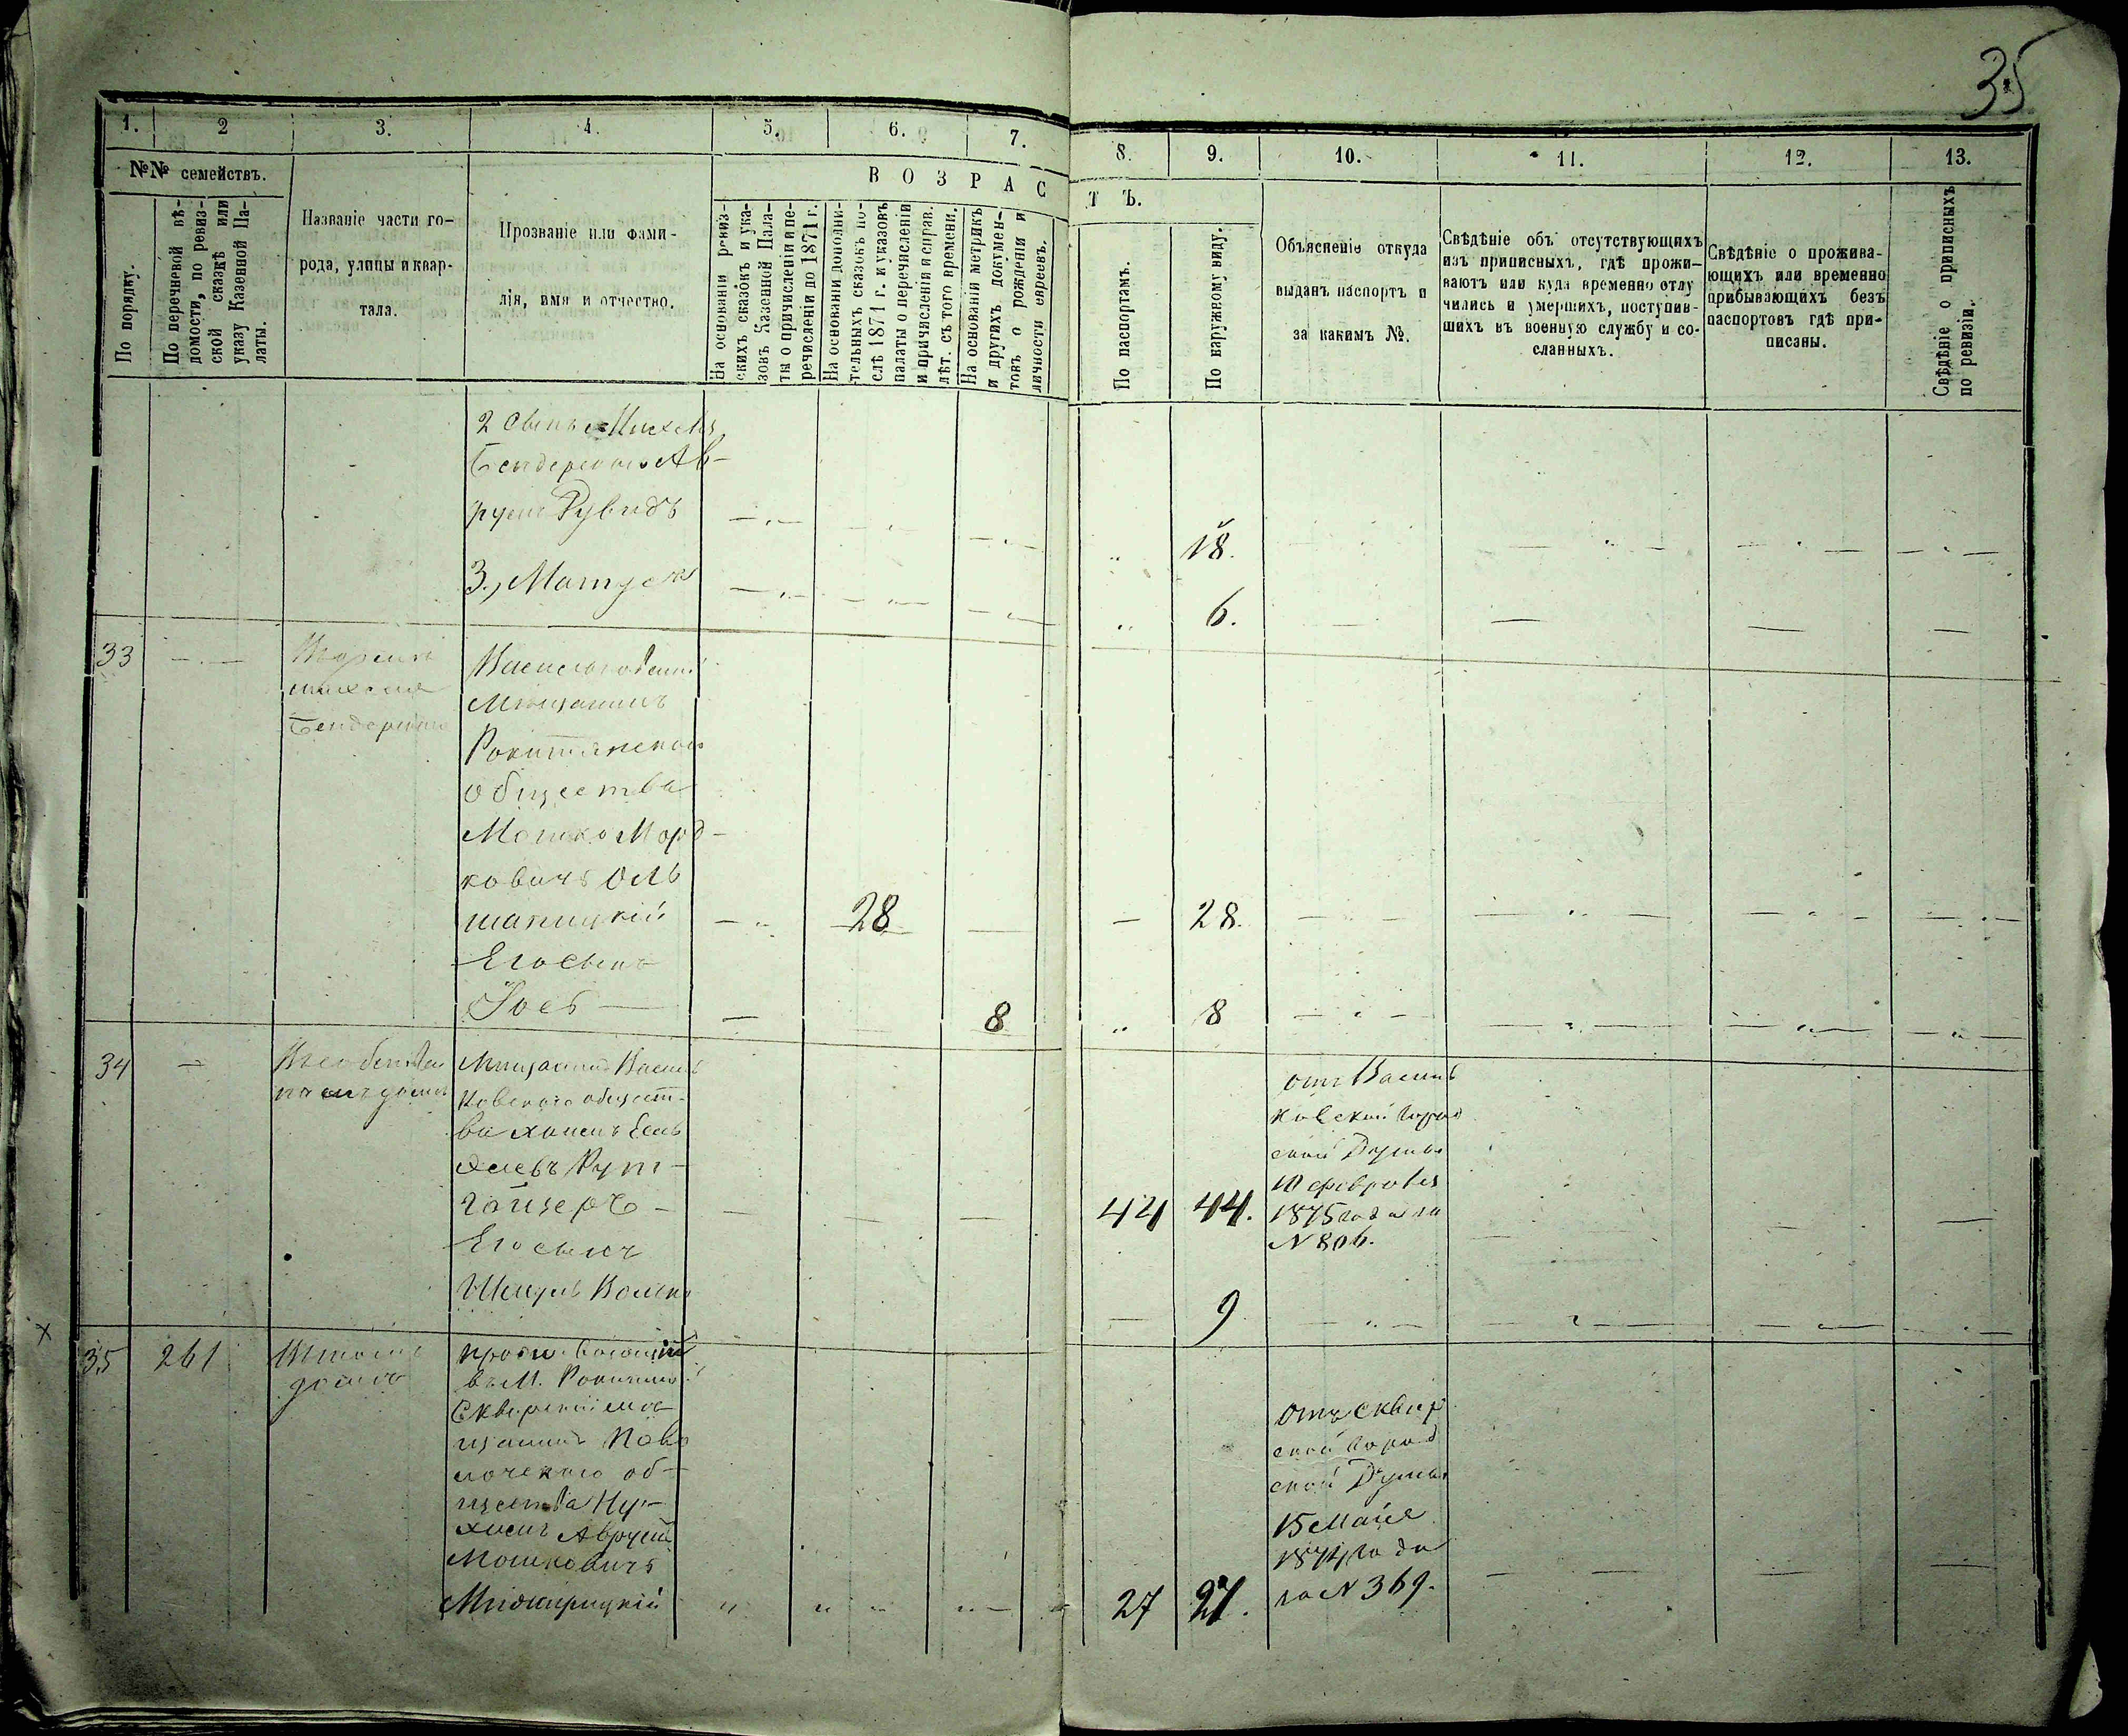 35
1. 2 3. 4. 5. 6. 7. 8. 9. 10. 11. 12. 13.
№№ семействъ.
По порядку.
По перечневой вѣ-
домости, по ревиз-
ской сказкѣ или
указу Казенной Па-
латы.
Названіе части го-
рода, улицы и квар-
тала.
Прозваніе или фами-
лія, имя и отчество.
ВОЗРАСТЪ.
На основаніи ревиз-
скихъ сказокъ и ука-
зовъ Казенной Пала-
ты о причисленіи и пе-
речисленіи до 1871 г.
На основаніи дополни-
тельныхъ сказокъ по-
слѣ 1871 г. и указовъ
палаты о перечисленіи
и причисленіи и справ.
лѣт. съ того времени.
На основаніи метрикъ
и другихъ докумен-
товъ о рожденіи и
личности евреевъ.
По паспортамъ.
По наружному виду.
Объясненіе откуда
выданъ паспортъ и
за какимъ №.
Свѣдѣніе объ отсутствующихъ
изъ приписныхъ, гдѣ прожи-
ваютъ или куда временно отлу
чились и умершихъ, поступив-
шихъ въ военную службу и со-
сланныхъ.
Свѣдѣніе о прожива-
ющихъ или временно
прибывающихъ безъ
паспортовъ гдѣ при-
писаны.
Свѣдѣніе о приписныхъ
по ревизіи.
2 Сынъ Михеля
Бендерскаго Ав-
румъ Рувидъ
18.
3., Матус
6.
33
Бендерскаго
Мѣщанинъ
Рокитянскаго
общества
Мошко Морд-
ковичъ Оль
шаницкій
28 — 28.
Его Сынъ
Іось
8 8
34
Мѣщанинъ Василь
ковскаго общест-
ва Хаимъ
Рут-
гайзеръ
44 44.
отъ Василь
ковской Город
ской Думы
10 февраля
1875 года за
N 806.
Его сынъ
9
35 261
домъ
проживающій
въ М. Рокитно
Сквирскій мѣ
щанинъ Паво
лочскаго об-
щества Ну-
химъ Аврумъ
Мошковичъ
Межирицкій
27 27.
Отъ Сквир
ской Город
ской Думы
15 Мая
1874 года
за N 369.